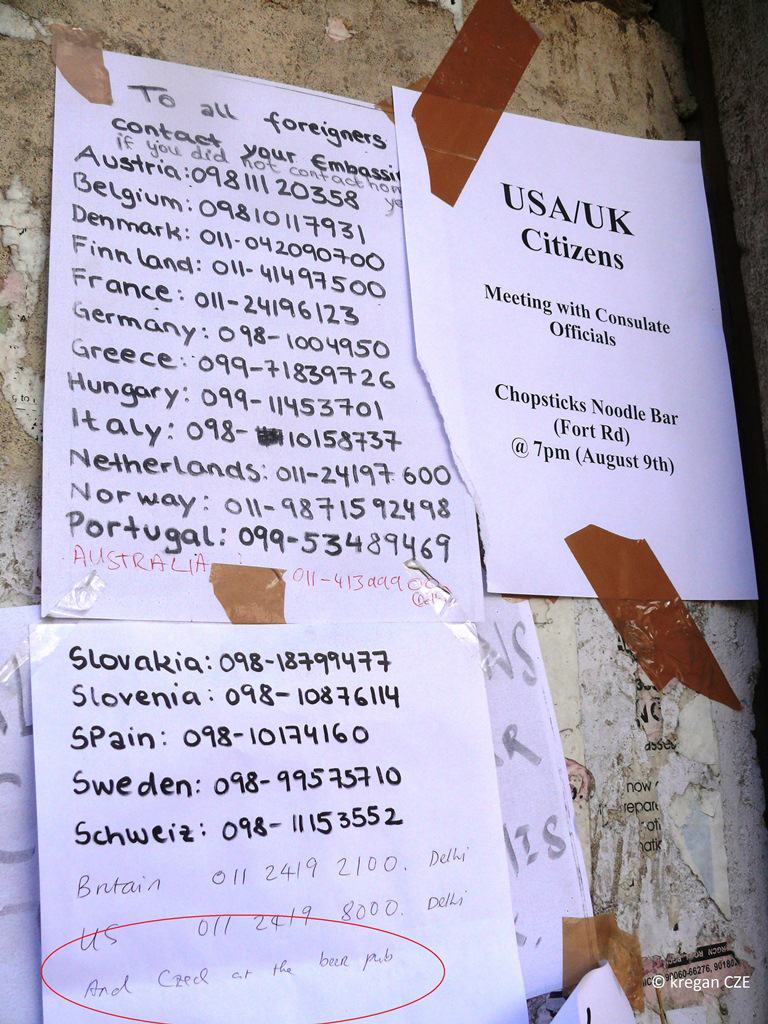 To all foreigners
contact your Embassi
if you did not contact hom
ye
Austria: 098111 20358
Belgium: 09810117931
Denmark: 011-042090700
Finnland: 011-41497500
France: 011-24196123
Germany: 098-1004950
Greece: 099-71839726
Hungary: 099-11453701
Italy: 098-10158737
Netherlands: 011-24197 600
Norway: 011-9871592498
Portugal: 099-53489469
AUSTRALIA :
USA/UK
Citizens
Meeting with Consulate
Officials
Chopsticks Noodle Bar
(Fort Rd)
@ 7pm (August 9th)
Slovakia: 098-18799477
Slovenia: 098-10876114
SPain: 098-10174160
Sweden: 098-99575710
Schweiz: 098-11153552
Britain 011 2419 2100. Delhi
US 011 2419 8000. Delhi
And Czech at the beer pub
NS
R
IS
now
repar
© kregan CZE